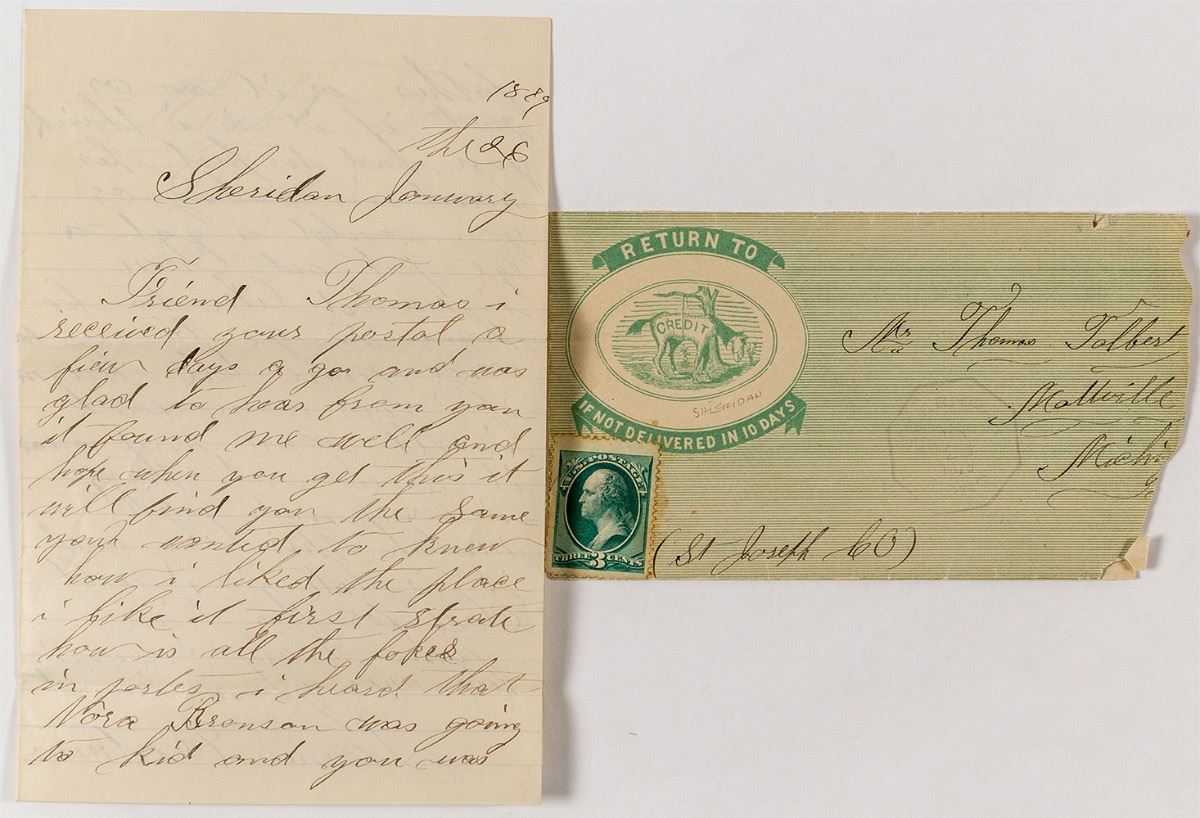 1889
the 26
Sheridan January
Friend Thomas i
received your postal a
fiew days a go and was
glad to hear from you
it found me well and
hope when you get this it
will find you the same
you wanted to know
how i liked the place
i like it first strate
how is all the fokes
in i heard that
Nora Bronson was going
to kid and you was
RETURN TO
CREDIT
SHERIDAN
IF NOT DELIVERED IN 10 DAYS
U.S. POSTAGE
THREE 3 CENTS
Mr Thomas Talbert
Mottville
Michig
(St Joseph CO)